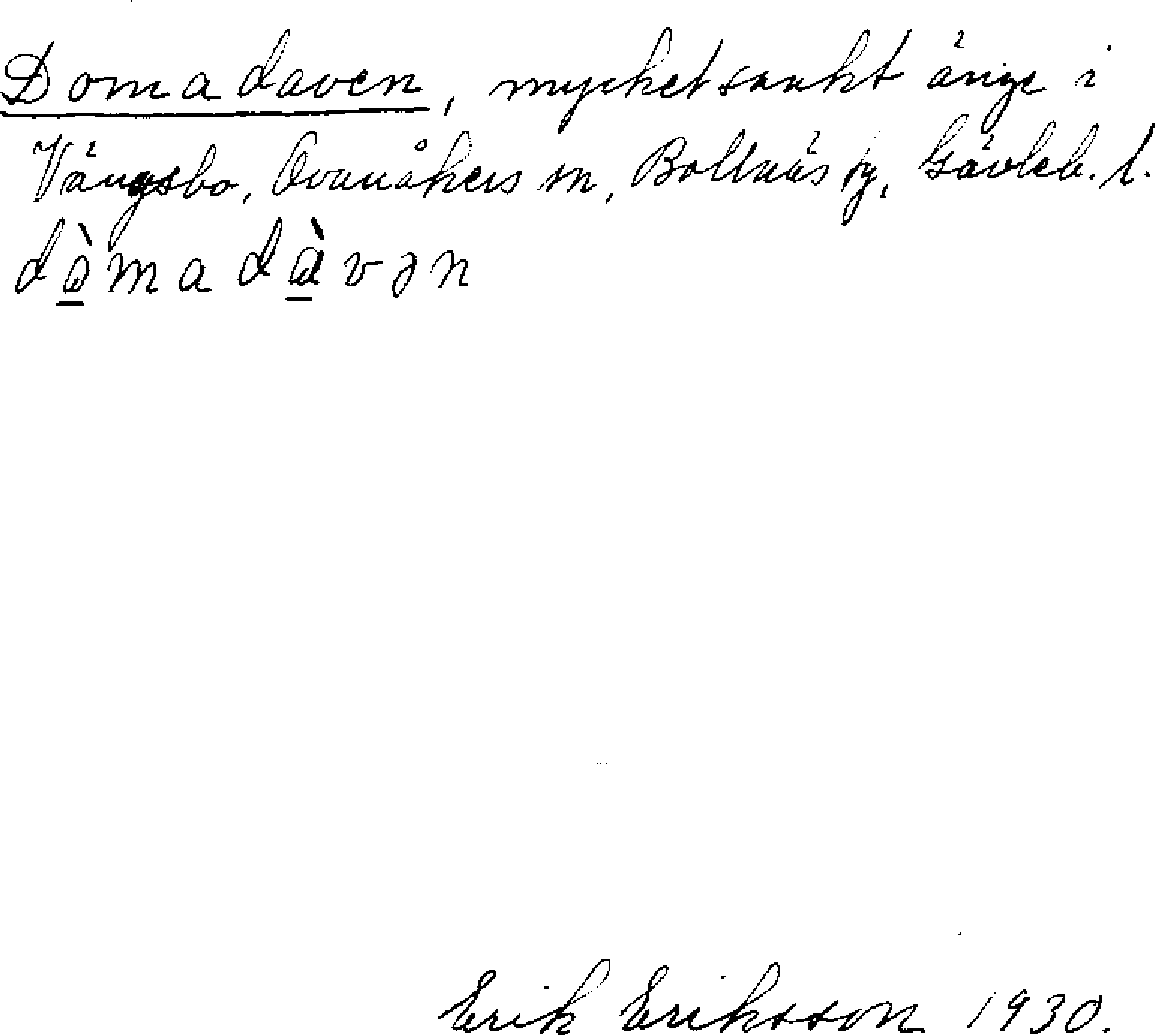 Domadaven, mycket sankt änge i
Vängsbo, Ovanåkers sn, Bollnäs tg, Gävleb. l.
dò̱madà̱vən
Erik Eriksson 1930.